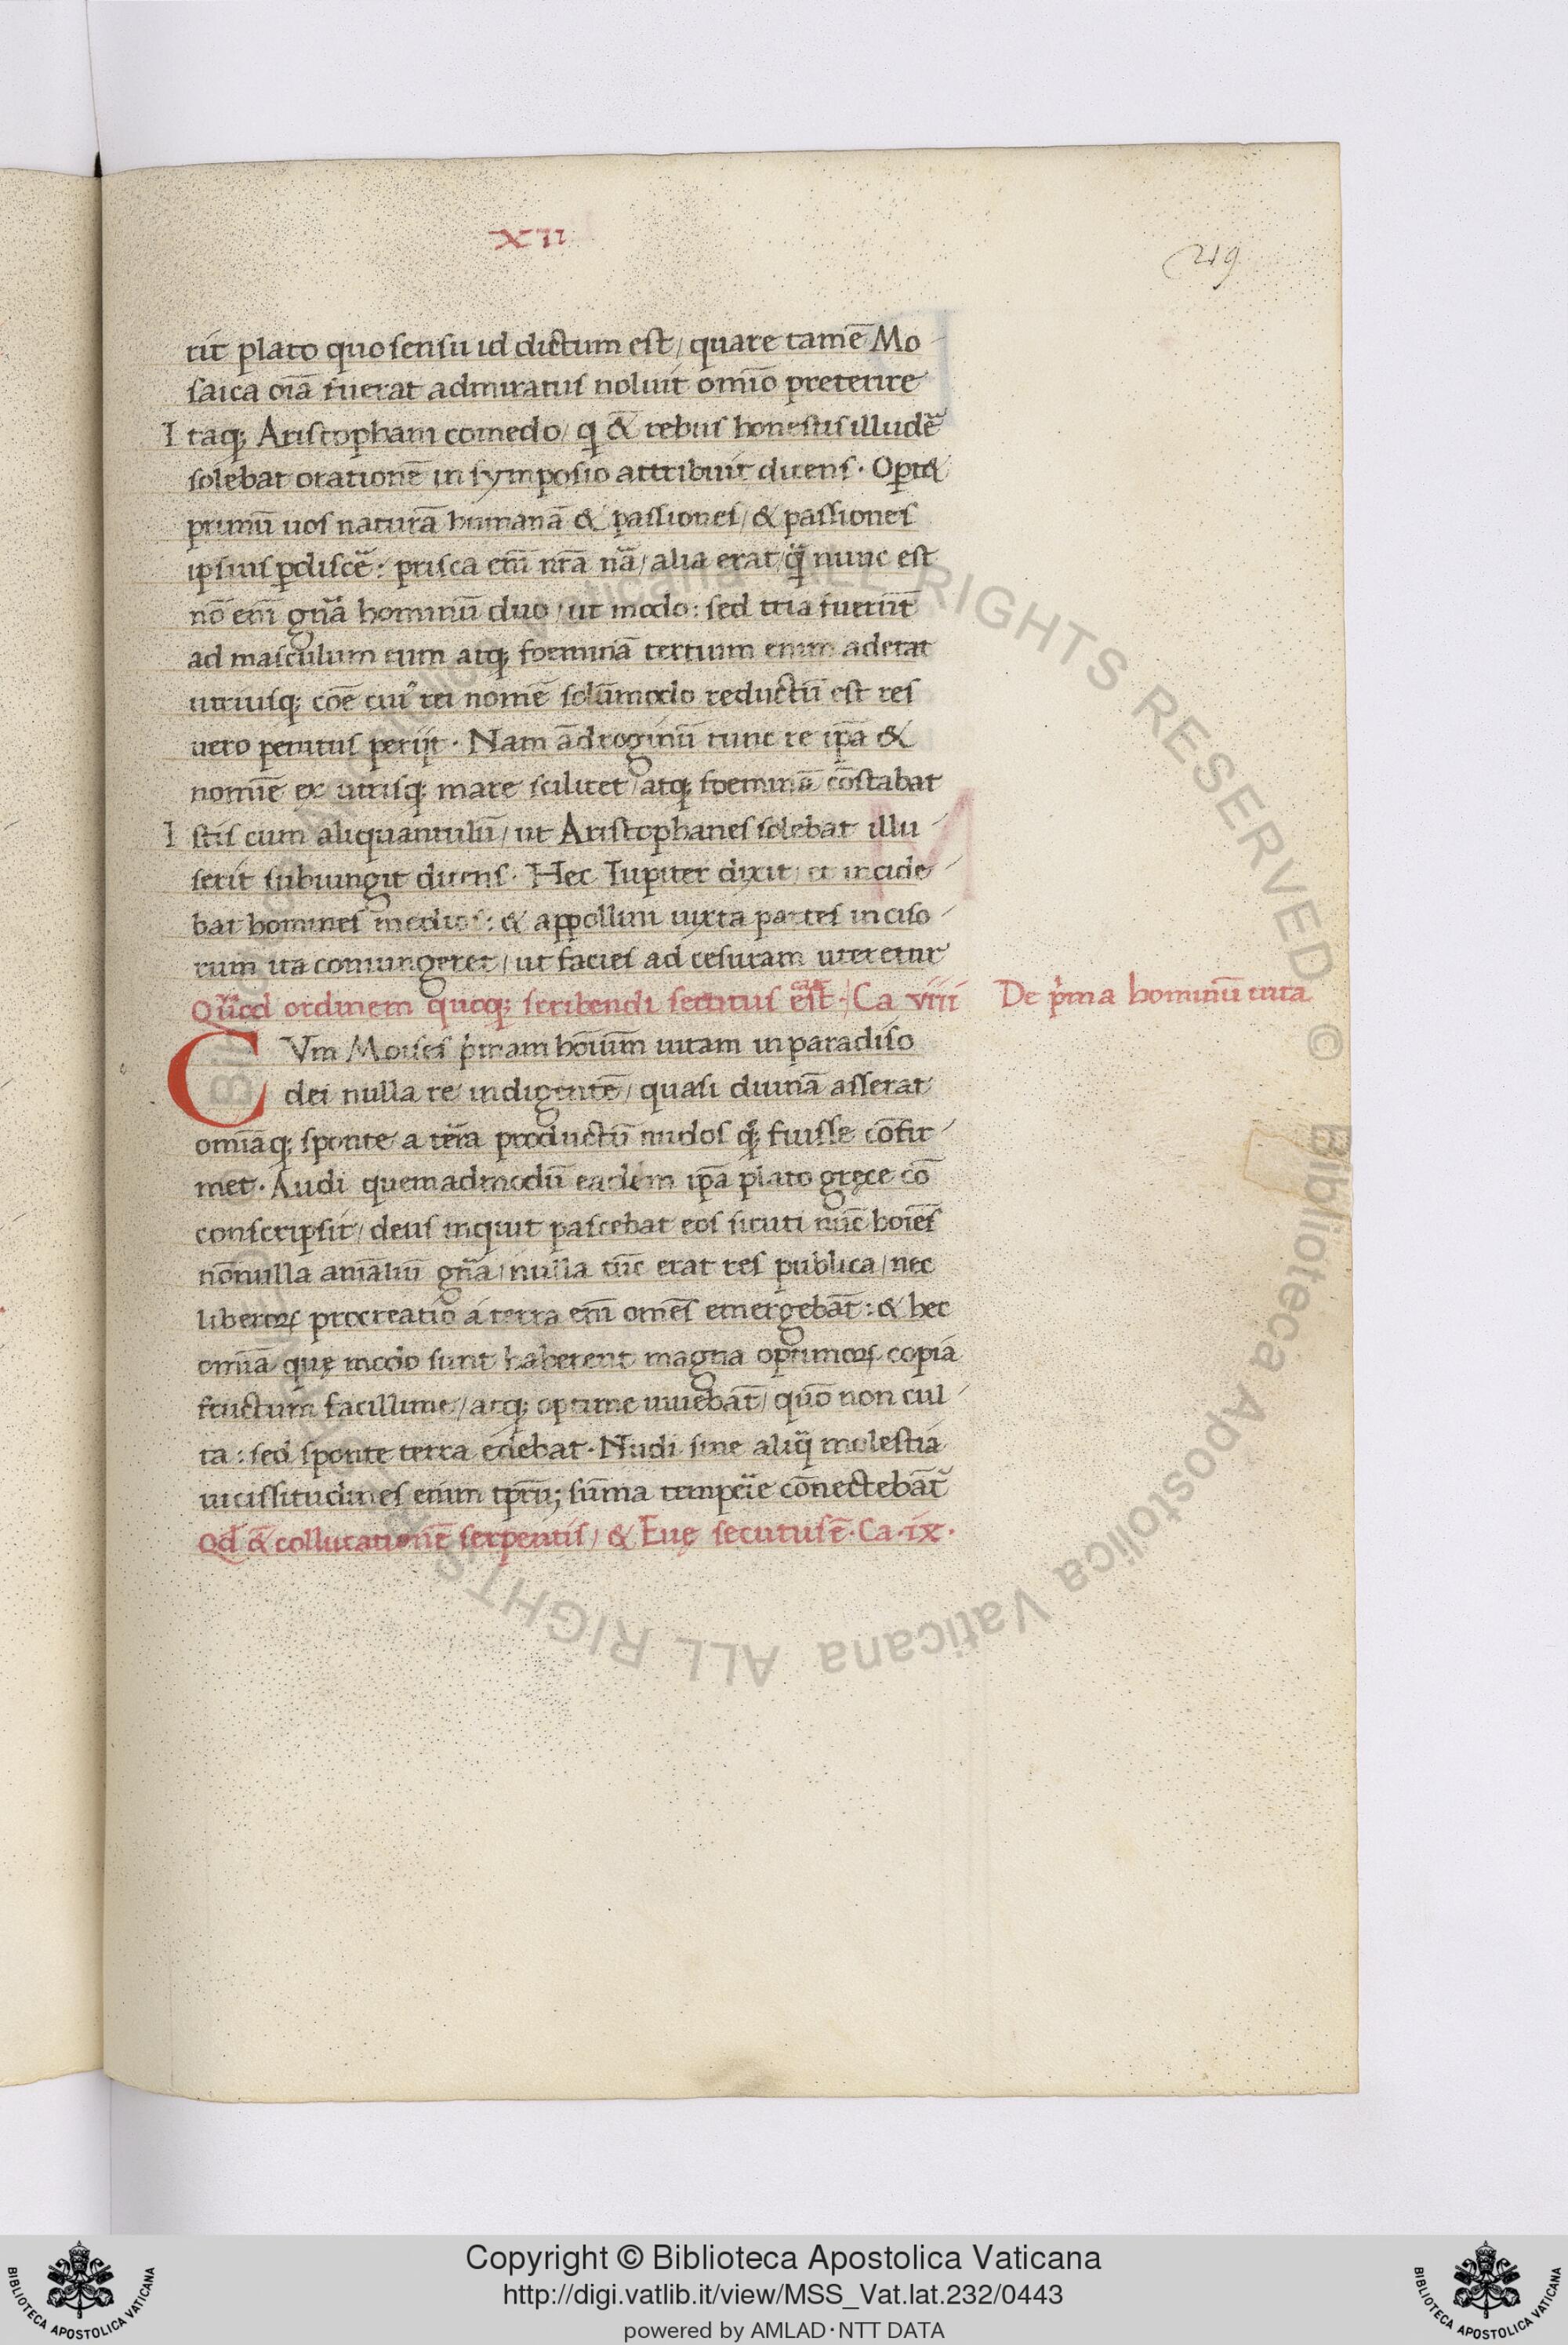 XII
219
rit plato quo sensu id dictum est / quare tamē Mo-
saica oīa fuerat admiratus noluit omīo preterire
Itaq; Aristopham comedo / qi & rebus honestis illudē
solebat orationē in symposio attribuit dicens · Oport&
primū uos naturā humanā & passiones / & passiones
ipsius pdiscē: prisca enī nrā nā / alia erat / q̄ nunc est
nō enī gnā hominū duo / ut modo: sed tria fuerūt
ad masculum eum atq; foeminā tertium enim aderat
utriusq; cōe cui' rei nomē solūmodo reductū est res
uero penitus perijt · Nam ādroginū tunc re ip̄a &
nomīe ex utrisq; mare scilicet / atq; foemina cōstabat
Istis cum aliquantulū / ut Aristophanes solebat illu-
serit subiungit dicens · Hec Iupiter dixit / et incide-
bat homines medios: & appollini iuxta partes inciso-
rum ita coniungeret / ut facies ad cesuram uteretur
Quod ordinem quoq; scribendi secutus est · / Ca viii De p'ma hominū uita
CVm Moises p'mam hoīum uitam in paradiso
dei nulla re indigentē / quasi diuinā asserat
omīaq; sponte a terra productū nudos q; fuisse cōfir-
met · Audi quemadmodū eadem ip̄a plato gręce cō
conscripsit / deus inquit pascebat eos sicuti nūc hoīes
nōnulla anīaliū gnā / nulla tūc erat res publica / nec
liberoꝝ procreatio a terra enī omēs emergebāt: & hec
omīa quę modo sunt haberent magna optimoꝝ copiā
fructum facillime / atq; optime uiuebāt / quō non cul-
ta: sed sponte terra edebat · Nudi sine aliq̄ molestia
uicissitudines enim tp̄rū; sūma temperie cōnectebāt'
Qd̄ & collucationē serpentis / & Euę secutus ē · Ca · ix ·
Copyright © Biblioteca Apostolica Vaticana
http://digi.vatlib.it/view/MSS_Vat.lat.232/0443
powered by AMLAD·NTT DATA
BIBLIOTECA APOSTOLICA VATICANA
BIBLIOTECA APOSTOLICA VATICANA
© Biblioteca Apostolica Vaticana ALL RIGHTS RESERVED © Biblioteca Apostolica Vaticana ALL RIGHTS RESERVED